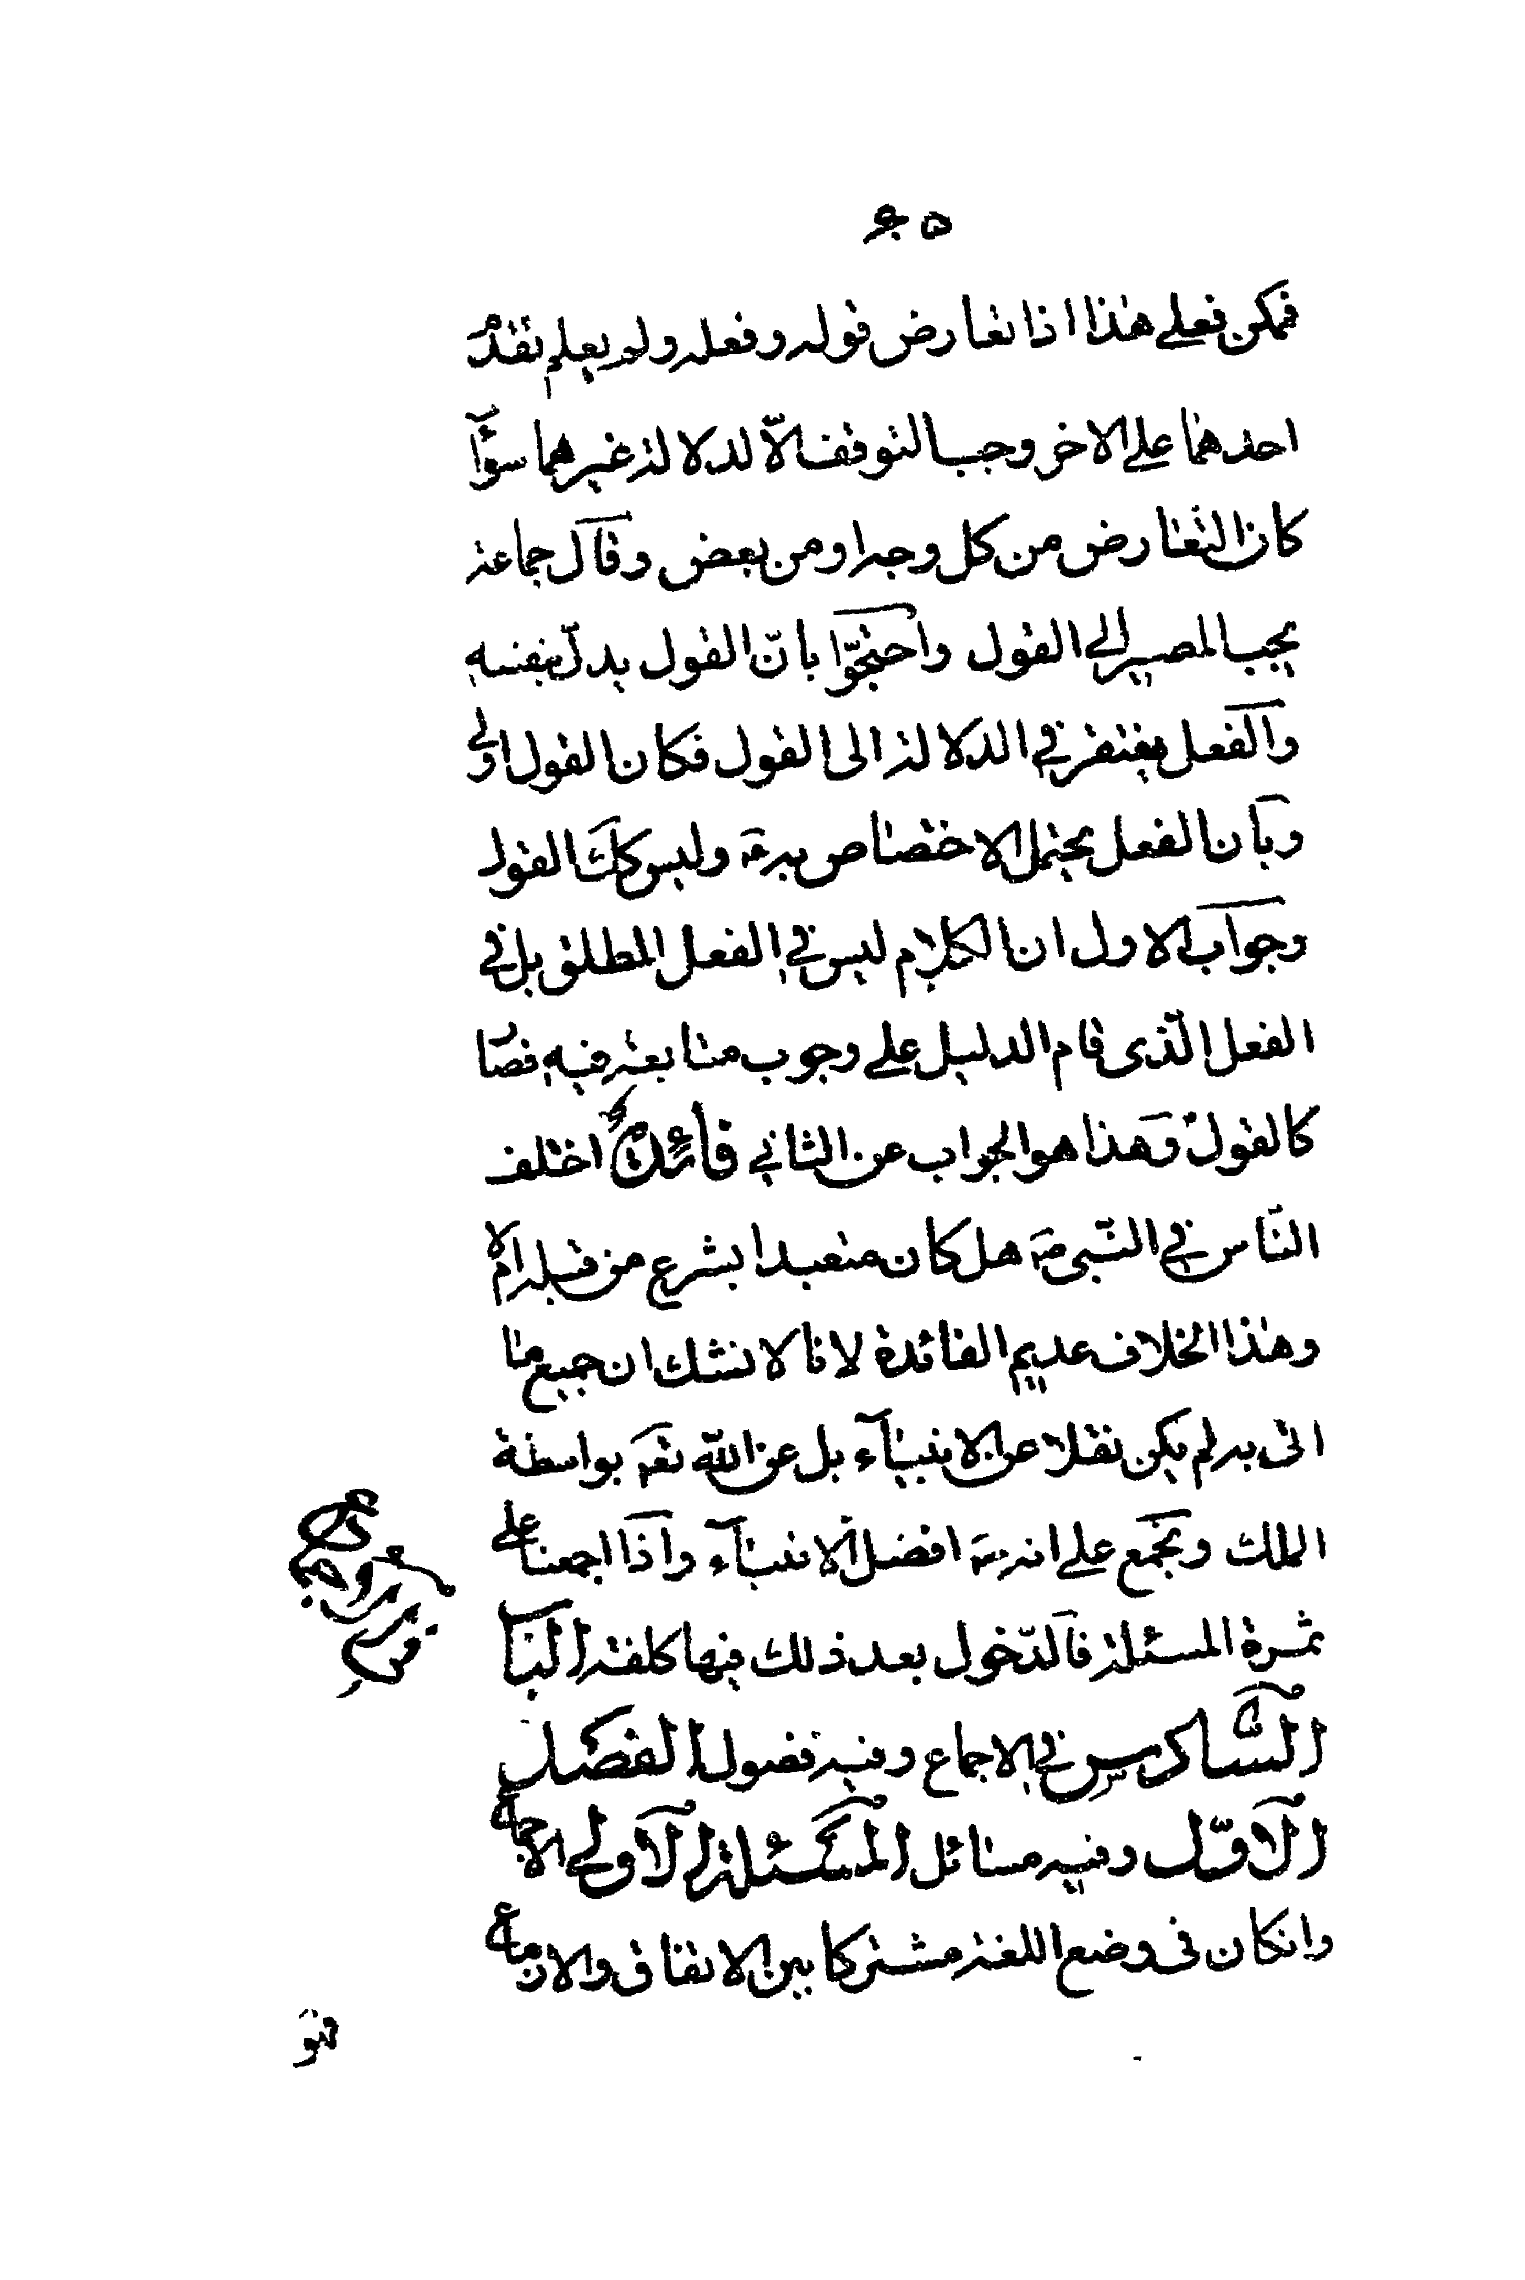 ممكن فعلى هذا اذا تعارض قوله وفعله ولم يعلم تقدم
احدهما على الاخر وجب التوقف الّا لدلالة غيرهما سوآ
كان التعارض من كل وجه او من بعض وقال جماعة
يجب المصير الى القول واحتجّوا بانّ القول يدلّ بنفسه
والفعل يفتقر في الدلالة الى القول فكان القول اولى
وبان الفعل يحتمل الاختصاص به ع وليس كك القول
وجواب الاول ان الكلام ليس في الفعل المطلق بل في
الفعل الّذى قام الدليل على وجوب متابعته فيه فصا
كالقول وهذا هو الجواب عن الثاني فائدة اختلف
النّاس في النّبى ص هل كان متعبدا بشرع من قبله ام لا
وهذا الخلاف عديم الفائدة لانا لا نشك ان جميع ما
اتى به لم يكن نقلا عن الانبيآء بل عن اللّه تع بواسطة
الملك ونجمع على انه ص افضل الانبيآء واذا اجمعنا على
ثمرة المسئلة فالدّخول بعد ذلك فيها كلفة الباب
السّادس في الاجماع وفيه فصول الفصل
الاوّل وفيه مسائل المسئلة الاولى الاجماع
وانكان فى وضع اللغة مشتركا بين الاتفاق والازماع
فهو